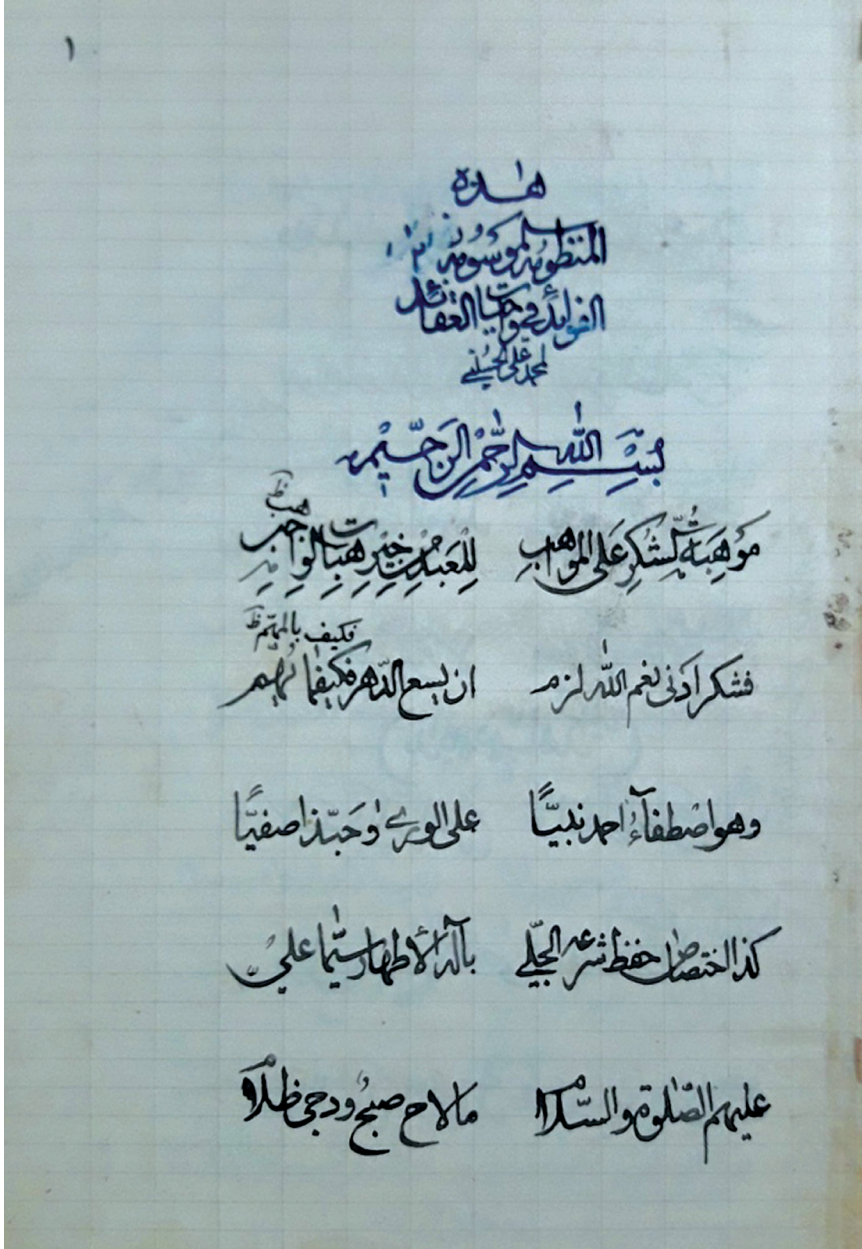 ١
هذه
المنظومة الموسومة بـ
الفرائد في واجبات العقائد
لمحمد علي الحسيني
بسم الله الرحمن الرحيم
هب ظ
موهبة الشكر على المواهب للعبد من خير هبات الواجب
فكيف بالمهتم ظ
فشكر ادنى نعم الله لزم ان يسع الدهر فكيفما
وهو اصطفاء احمد نبيًّا على الورى وحبّذا صفيًّا
كذا اختصاص حفظ شرعه الجلي بآله الأطهار سيّما علي
عليهم الصلوة والسّلام ما لاح صبح ودجى ظلام